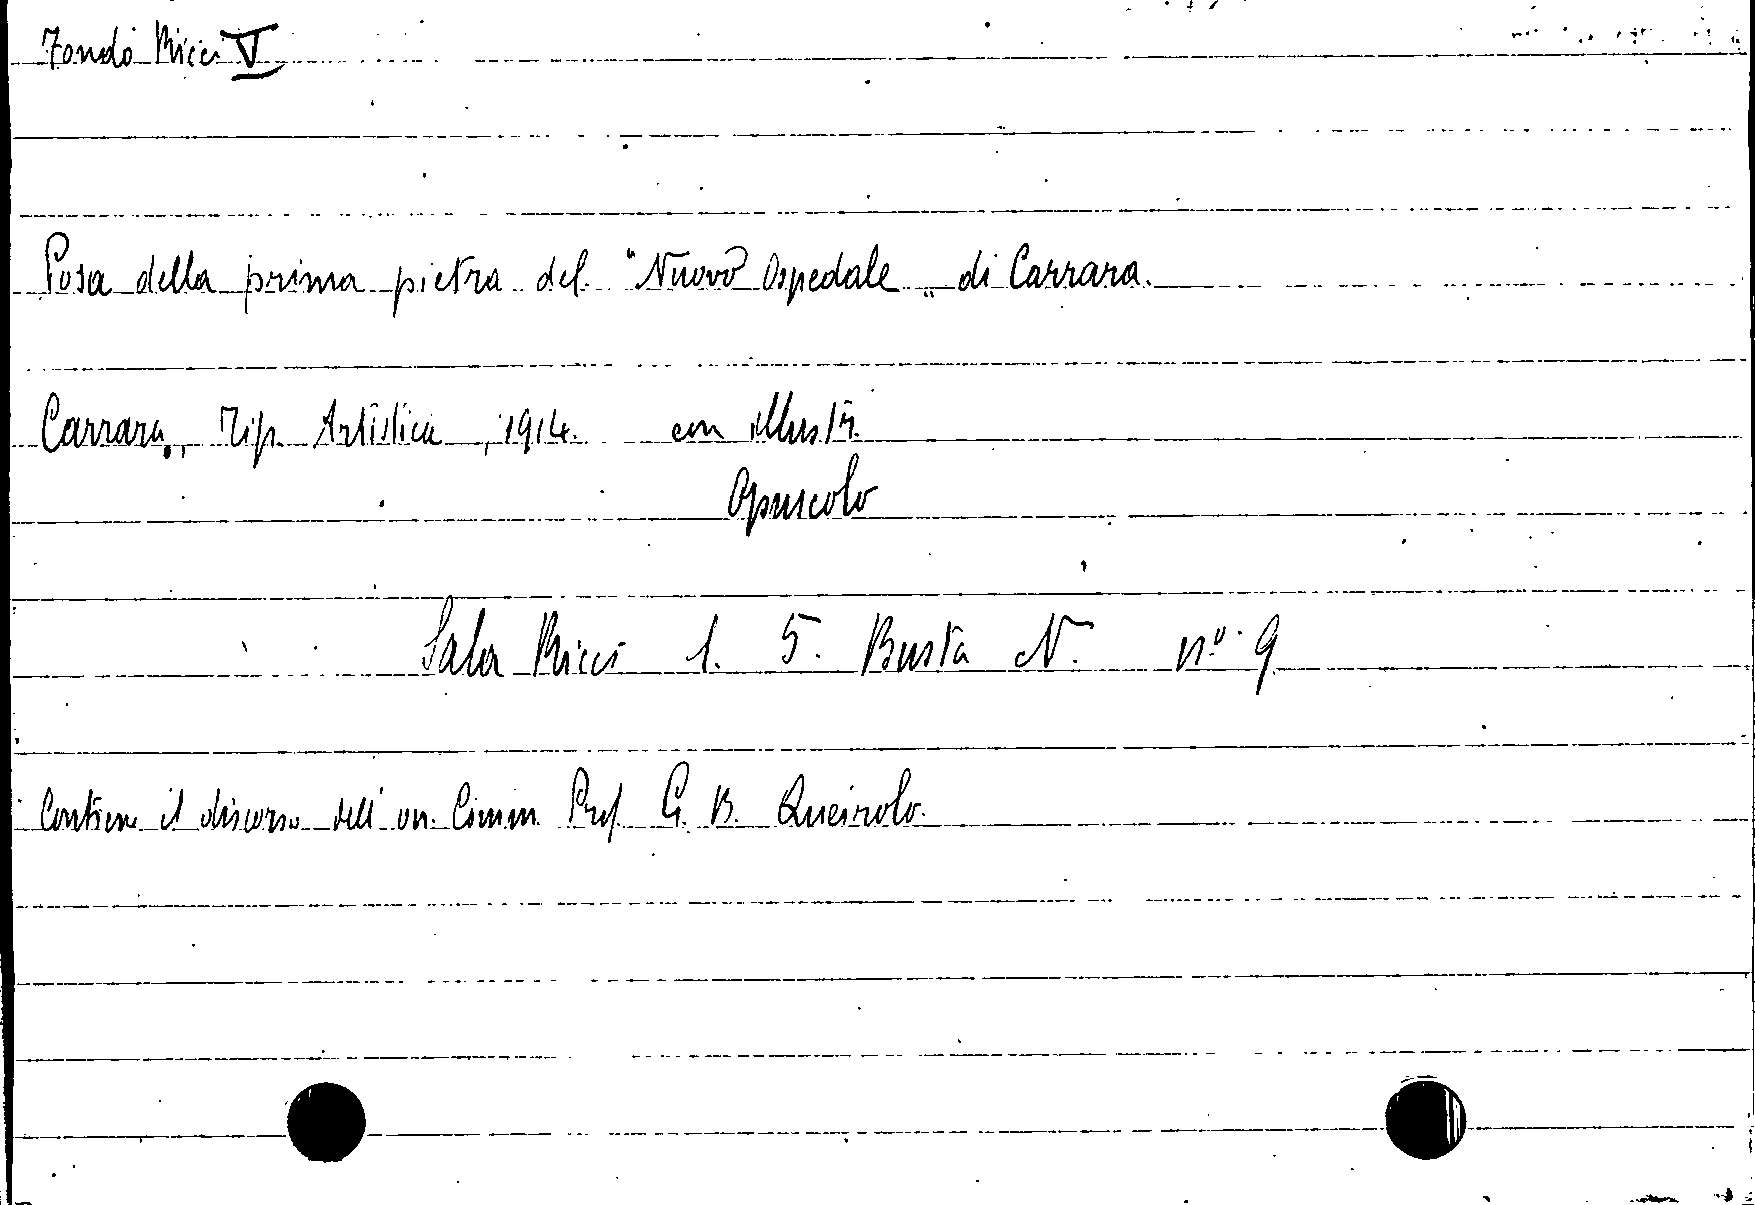 Fondo Ricci V
Posa della prima pietra del "Nuovo Ospedale„ di Carrara.
Carrara, Tip. Artistica, 1914. con illustr.
Opuscolo
Sala Ricci 1. 5. Busta N. nº 9
Contiene il discorso dell'on. Comm. Prof. G. B. Queirolo.